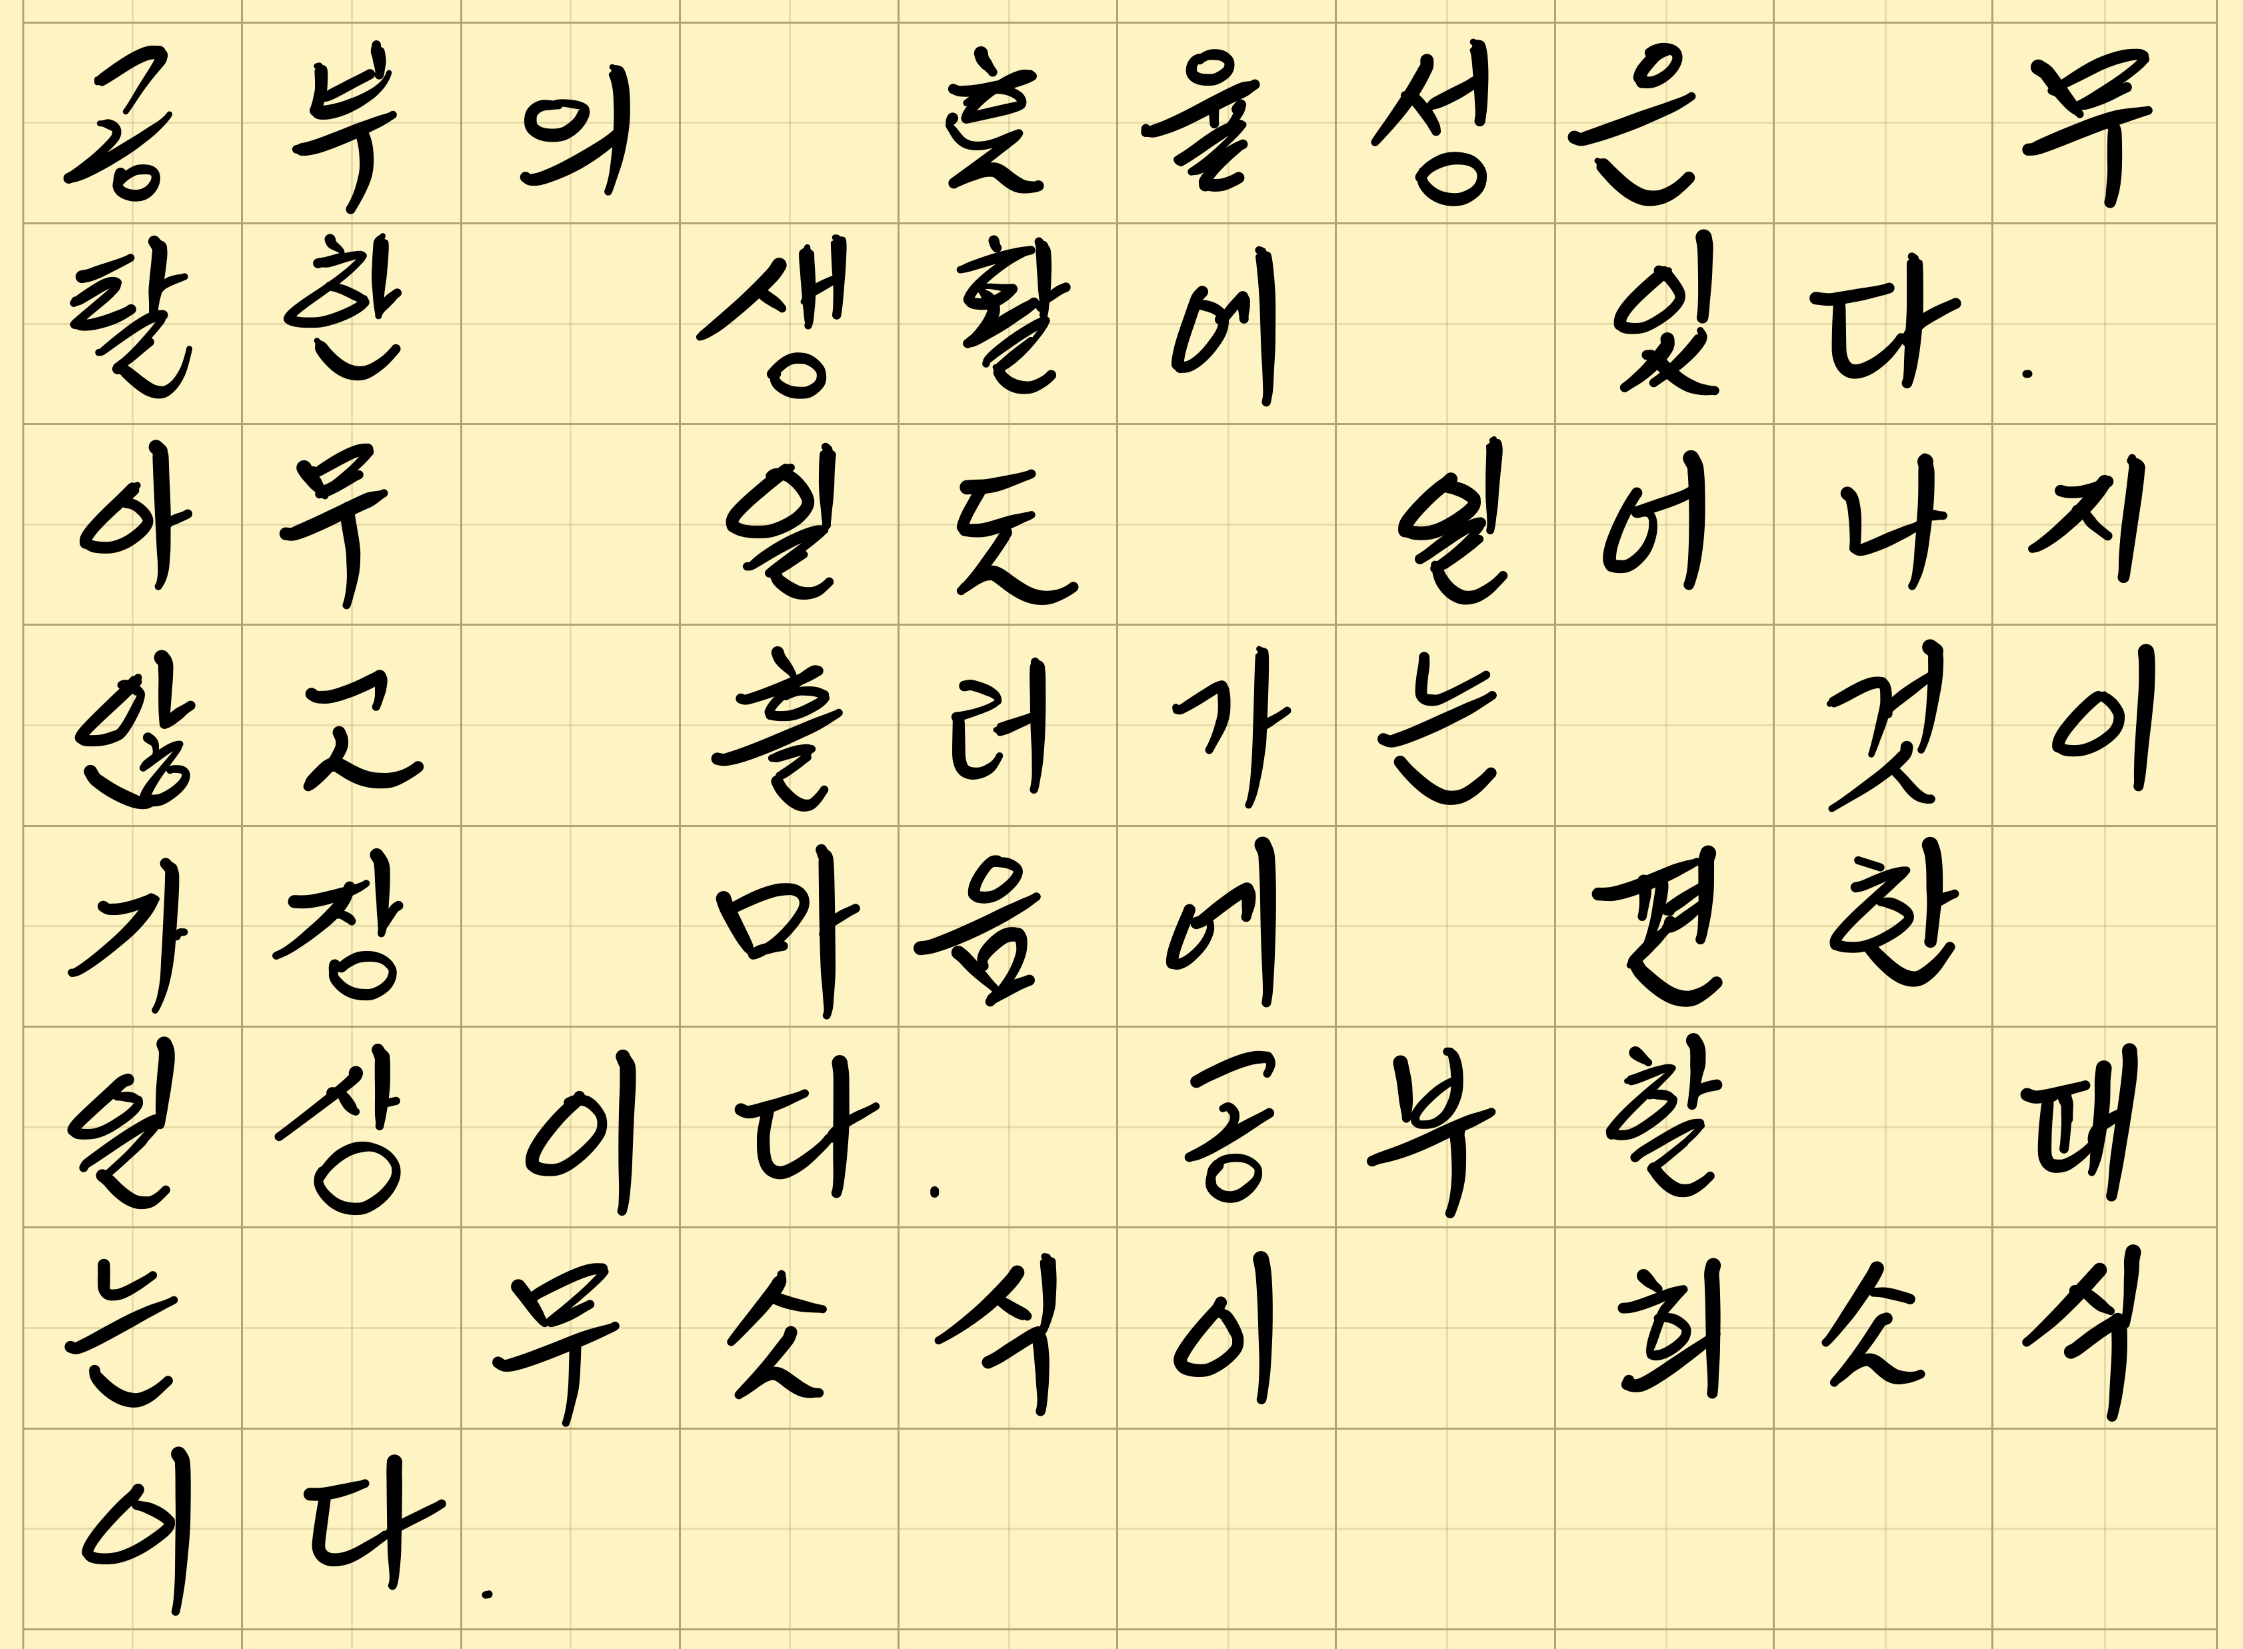 공부의 효율성은 무
탈한 생활에 있다.
아무 일도 일어나지
않고 흘러가는 것이
가장 마음에 편한
일상이다. 공부할 때
는 무소식이 희소식
이다.